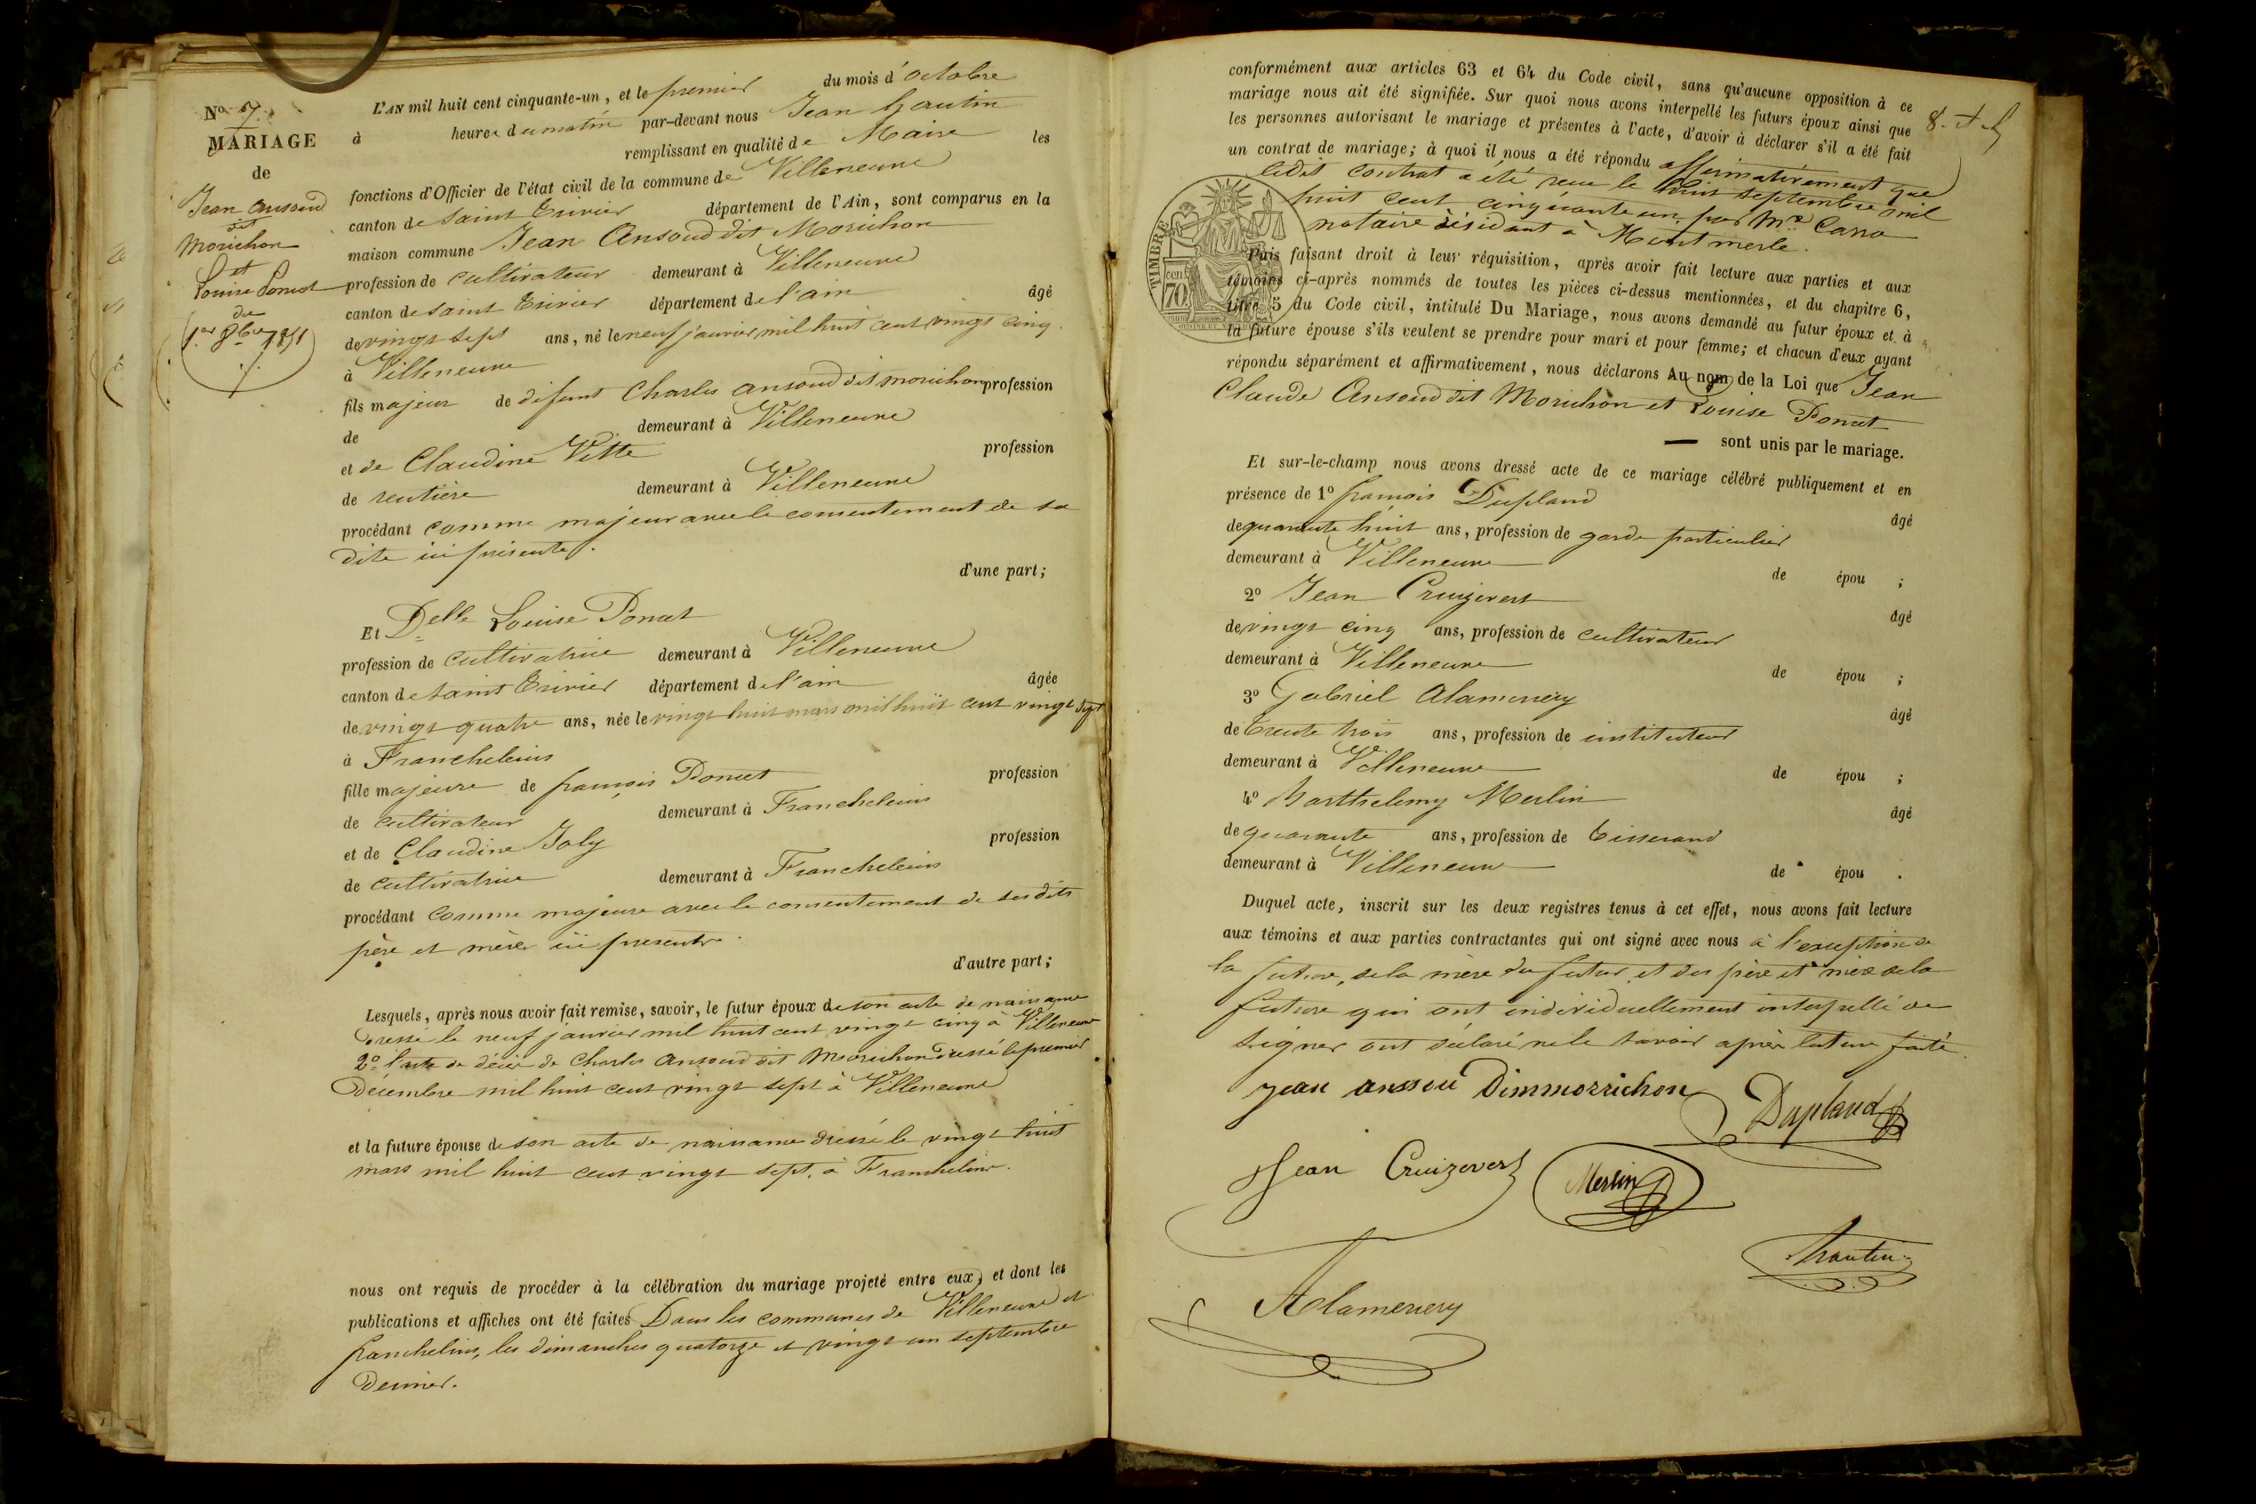 N° 7.
MARIAGE
de
Jean Ansoud
dit
Morichon
et
Louise Poncet
du
1er 8bre 1851
L'AN mil huit cent cinquante-un, et le premier du mois d'octobre
à heures du matin par-devant nous Jean Gautin
remplissant en qualité de Maire les
fonctions d'Officier de l'état civil de la commune de Villeneuve
canton de Saint Trivier département de l'Ain, sont comparus en la
maison commune Jean Ansoud dit Morichon
profession de cultivateur demeurant à Villeneuve
canton de Saint Trivier département de l'ain âgé
de vingt sept ans, né le neuf janvier mil huit cent vingt cinq
à Villeneuve
fils majeur de défunt Charles ansoud dit morichon profession
de demeurant à Villeneuve
et de Claudine Vitte profession
de rentière demeurant à Villeneuve
procédant comme majeur avec le consentement de sa
dite ici présente.
d'une part;
Et Delle Louise Poncet
profession de cultivatrice demeurant à Villeneuve
canton de Saint Trivier département de l'ain âgée
de vingt quatre ans, née le vingt huit mars mil huit cent vingt sept
à Francheleins
fille majeure de françois Poncet profession
de cultivateur demeurant à Francheleins
et de Claudine Joly profession
de cultivatrice demeurant à Francheleins
procédant comme majeure avec le consentement de ses dits
père et mère ici présents.
d'autre part;
Lesquels, après nous avoir fait remise, savoir, le futur époux de son acte de naissance
dressé le neuf janvier mil huit cent vingt cinq à Villeneuve
2° l'acte de décès de Charles Ansoud dit Morichon dressé le premier
Décembre mil huit cent vingt sept à Villeneuve
et la future épouse de son acte de naissance dressé le vingt huit
mars mil huit cent vingt sept, à Franchelins.
nous ont requis de procéder à la célébration du mariage projeté entre eux, et dont les
publications et affiches ont été faites Dans les communes de Villeneuve et
franchelins, les dimanches quatorze et vingt un septembre
Dernier.
conformément aux articles 63 et 64 du Code civil, sans qu'aucune opposition à ce
mariage nous ait été signifiée. Sur quoi nous avons interpellé les futurs époux ainsi que
les personnes autorisant le mariage et présentes à l'acte, d'avoir à déclarer s'il a été fait
un contrat de mariage; à quoi il nous a été répondu affirmativement que
ledit contrat a été reçu le huit septembre mil
huit cent cinquante un par Mre Carra
notaire résidant à Montmerle.
TIMBRE
70 cent
Puis faisant droit à leur réquisition, après avoir fait lecture aux parties et aux
témoins ci-après nommés de toutes les pièces ci-dessus mentionnées, et du chapitre 6,
titre 5 du Code civil, intitulé Du Mariage, nous avons demandé au futur époux et à
la future épouse s'ils veulent se prendre pour mari et pour femme; et chacun d'eux ayant
répondu séparément et affirmativement, nous déclarons Au nom de la Loi que Jean
Claude Ansoud dit Morichon et Louise Poncet
sont unis par le mariage.
Et sur-le-champ nous avons dressé acte de ce mariage célébré publiquement et en
présence de 1° françois Dupland
âgé
de quarante huit ans, profession de garde particulier
demeurant à Villeneuve de épou ;
2° Jean Cruizevert âgé
de vingt cinq ans, profession de cultivateur
demeurant à Villeneuve de épou ;
3° Gabriel Alamercery âgé
de trente trois ans, profession de instituteur
demeurant à Villeneuve de épou ;
4° Barthelemy Merlin âgé
de quarante ans, profession de tisserand
demeurant à Villeneuve de épou .
Duquel acte, inscrit sur les deux registres tenus à cet effet, nous avons fait lecture
aux témoins et aux parties contractantes qui ont signé avec nous à l'exception de
la future, de la mère du futur et des père et mère de la
future qui ont individuellement interpellé de
signer ont déclaré ne le savoir après lecture faite.
jean anssou Dimmorrichon
Dupland
Jean Cruizevert
Merlin
Alamercery